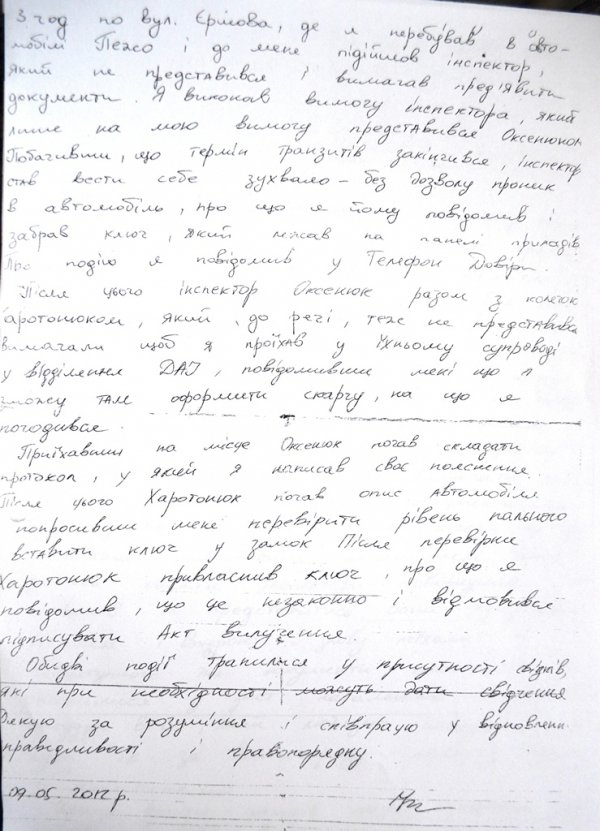 3 год по вул. Єрмова, де я перебував в авто-
мобілі Пежо і до мене підійшов інспектор,
який не представився і вимагав пред'явити
документи. Я виконав вимогу інспектора, який
лише на мою вимогу представився Оксенюком
Побачивши, що термін транзитів закінчився, інспектор
став вести себе зухвало - без дозволу проник
в автомобіль, про що я йому повідомив і
забрав ключ, який лежав на панелі приладів
Про подію я повідомив у Телефон Довіри.
Після цього інспектор Оксенюк разом з колегою
Харотонюком, який, до речі, теж не представився
вимагали щоб я проїхав у їхньому супроводі
у відділення ДАІ, повідомивши мені що я
зможу там оформити скаргу, на що я
погодився.
Приїхавши на місце Оксенюк почав складати
протокол, у якій я написав своє пояснення.
Після цього Харотонюк почав опис автомобіля
попросивши мене перевірити рівень пального
вставити ключ у замок Після перевірки
Харотонюк привласнив ключ, про що я
повідомив, що це незаконно і відмовився
підписувати Акт вилучення.
Обидві події трапилися у присутності свідків,
які при необхідності можуть дати свідчення
Дякую за розуміння і співпрацю у відновленні
праведливості і правопорядку.
09.05.2012 р.